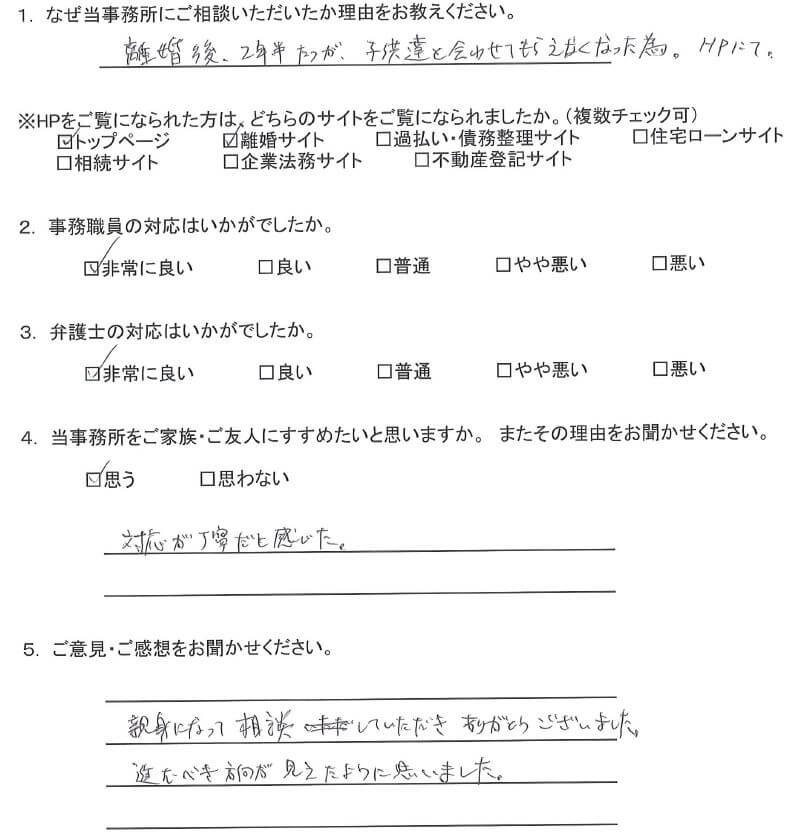 1. なぜ当事務所にご相談いただいたか理由をお教えください。
離婚後、2年半たつが、子供達と会わせてもらえなくなった為。HPにて。
※HPをご覧になられた方は、どちらのサイトをご覧になられましたか。(複数チェック可)
☑トップページ ☑離婚サイト □過払い・債務整理サイト □住宅ローンサイト
□相続サイト □企業法務サイト □不動産登記サイト
2. 事務職員の対応はいかがでしたか。
☑非常に良い □良い □普通 □やや悪い □悪い
3. 弁護士の対応はいかがでしたか。
☑非常に良い □良い □普通 □やや悪い □悪い
4. 当事務所をご家族・ご友人にすすめたいと思いますか。 またその理由をお聞かせください。
☑思う □思わない
対応が丁寧だと感じた。
5. ご意見・ご感想をお聞かせください。
親身になって相談していただきありがとうございました。
進むべき方向が見えたように思いました。